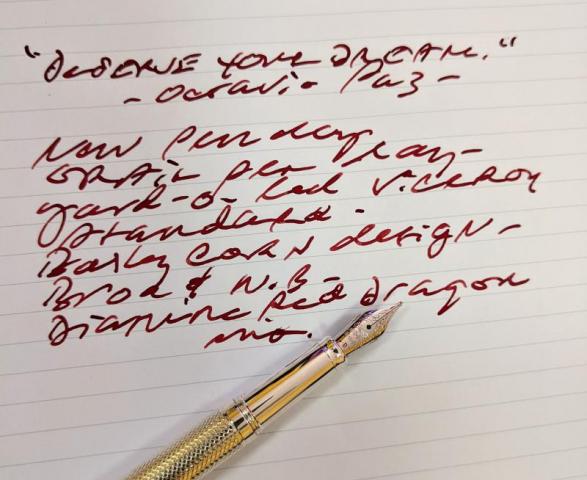 "DESERVE YOUR DREAM."
- Octavio Paz -
New pen day
GRAIL pen day -
yard-o-led VICEROY
standard -
Barley CORN design -
Broad N.B -
Diamine Red dragon
ink.